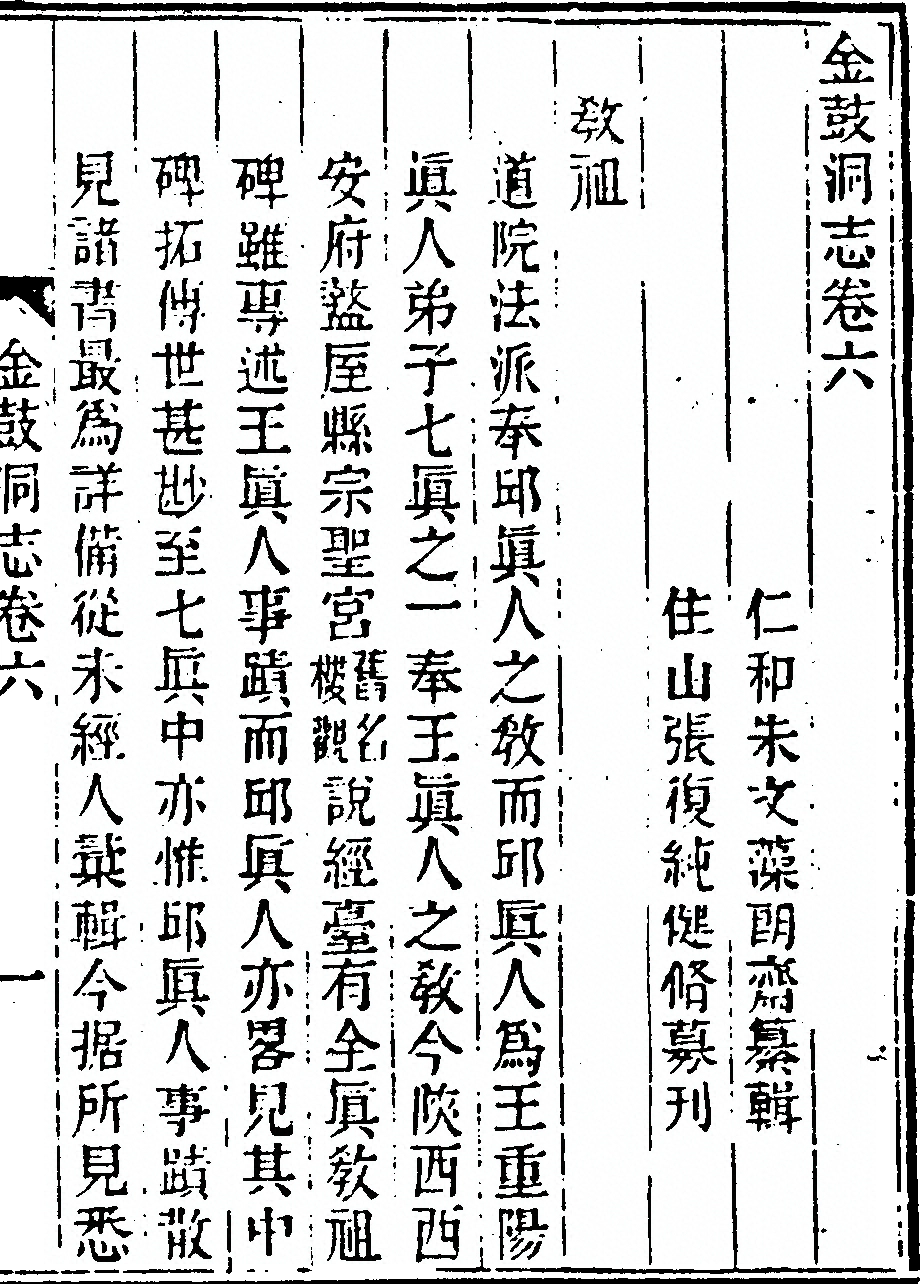 金鼓洞志卷六
仁和朱文藻朗齋纂輯
住山張復純𠋣脩募刊
教祖
道院法派奉邱眞人之教而邱眞人爲王重陽
眞人弟子七眞之一奉王眞人之教今陜西西
安府盩厔縣宗聖宮舊名樓觀說經臺有全眞教祖
碑雖專述王眞人事蹟而邱眞人亦畧見其中
碑拓傳世甚尠至七眞中亦惟邱眞人事蹟散
見諸書最爲詳備從未經人蕞輯今据所見悉
金鼓洞志卷六 一